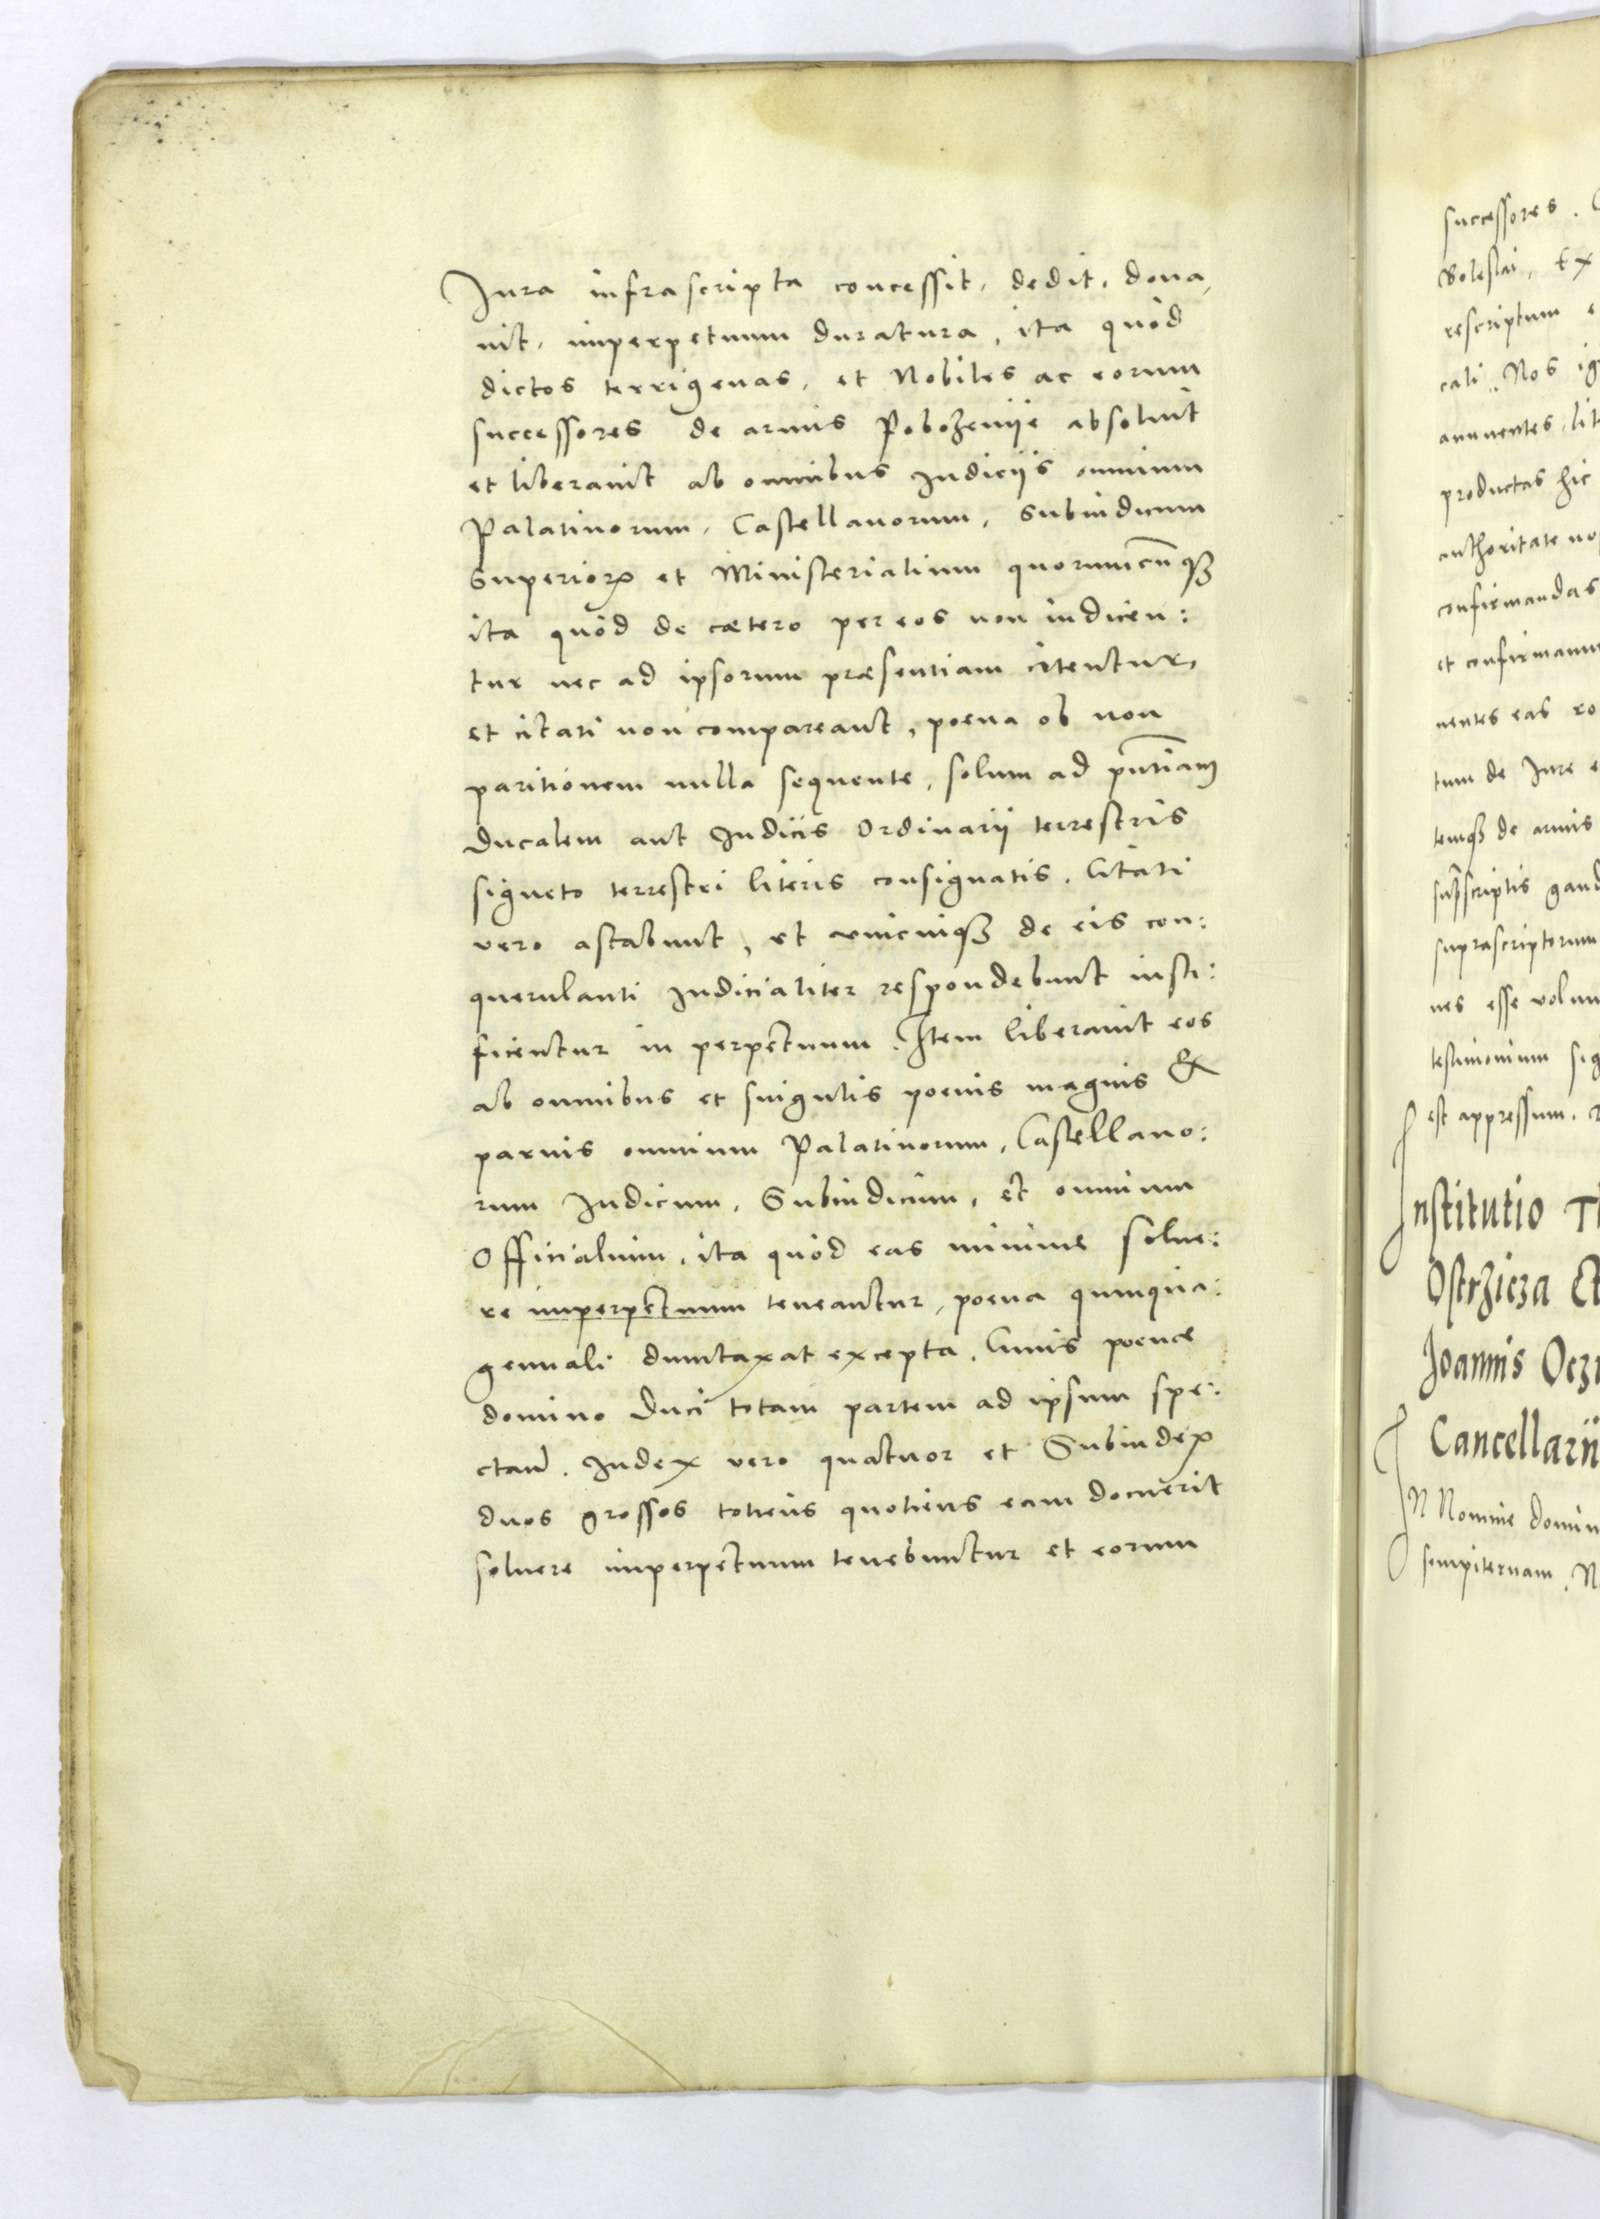 Jura infrascripta concessit, dedit, dona,
uit, imperpetuum duratura, ita quòd
dictos terrigenas, et Nobiles ac eorum
successores de armis Pobozenije absoluit
et liberauit ab omnibus Judicijs omnium
Palatinorum, Castellanorum, Subiudicum
Superiorꝝ et Ministerialium quorumcunqꝫ
ita quòd de cætero per eos non iudicen:
tur nec ad ipsorum præsentiam citentur,
et citati non compareant, poena ob non
paritionem nulla sequente, solum ad pn̄tiam
Ducalem aut Judicis Ordinarij terrestris
signeto terrestri literis consignatis. Citati
vero astabunt, et vnicuiqꝫ de eis con:
querulanti Judicialiter respondebunt iusti:
ficentur in perpetuum. Item liberauit eos
ab omnibus et singulis poenis magnis &
paruis omnium Palatinorum, Castellano:
rum Judicum, Subiudicum, et omnium
Officialium, ita quòd eas minime solue:
re imperpetuum teneantur, poena quinqua:
gennali duntaxat excepta. Cuius poenæ
domino Duci totam partem ad ipsum spe:
ctan̄. Judex vero quatuor et Subiudex
duos grossos totiens quotiens eam docuerit
soluere imperpetuum tenebuntur et eorum
successores.
Bolestai, Ex
rescriptum
cali. Nos
annuentes,
productas hic
authoritate
confirmandas
et
nentes eas
tum de Jure
temqꝫ de armis
suprascriptorum
nes esse
testimonium
est appressum.
Institutio
Ostrzicza Et
Joannis
Cancellarii
In Nomine
sempiternam.